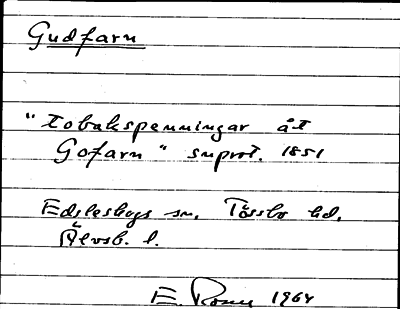 Gudfarn
"tobakspenningar åt
Gofarn" snprot. 1851
Edsleskogs sn. Tössbo hd.
Älvsb. l.
E. 1964